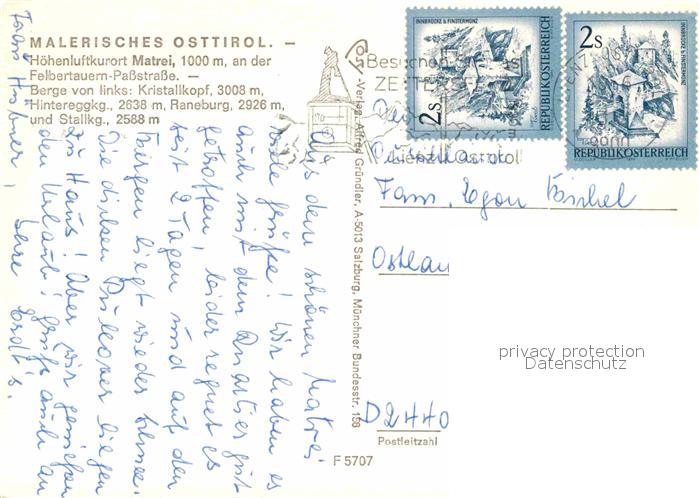 MALERISCHES OSTTIROL. —
Höhenluftkurort Matrei, 1000 m, an der
Felbertauern-Paßstraße. —
Berge von links: Kristallkopf, 3008 m,
Hintereggkg., 2638 m, Raneburg, 2926 m,
und Stallkg., 2588 m
Aus dem schönen Matrei
viele Grüße! Wir haben es
auch mit dem Quartier gut
getroffen, leider regnet es
seit 2 Tagen und auf den
Bergen liegt wieder Schnee.
Die dicken Pullover liegen
zu Haus! Aber wir genießen
den Urlaub! Grüße auch an
Frau Hübner,
Verlag Alfred Gründler, A-5013 Salzburg, Münchner Bundesstr. 156
INNBRÜCKE B. FINSTERMÜNZ
2S
REPUBLIK ÖSTERREICH
INNBRÜCKE B. FINSTERMÜNZ
2S
REPUBLIK ÖSTERREICH
Besuchen
Lienz Osttirol
9900
Fam. Egon
Ostheim
D2440
Postleitzahl
F 5707
privacy protection
Datenschutz